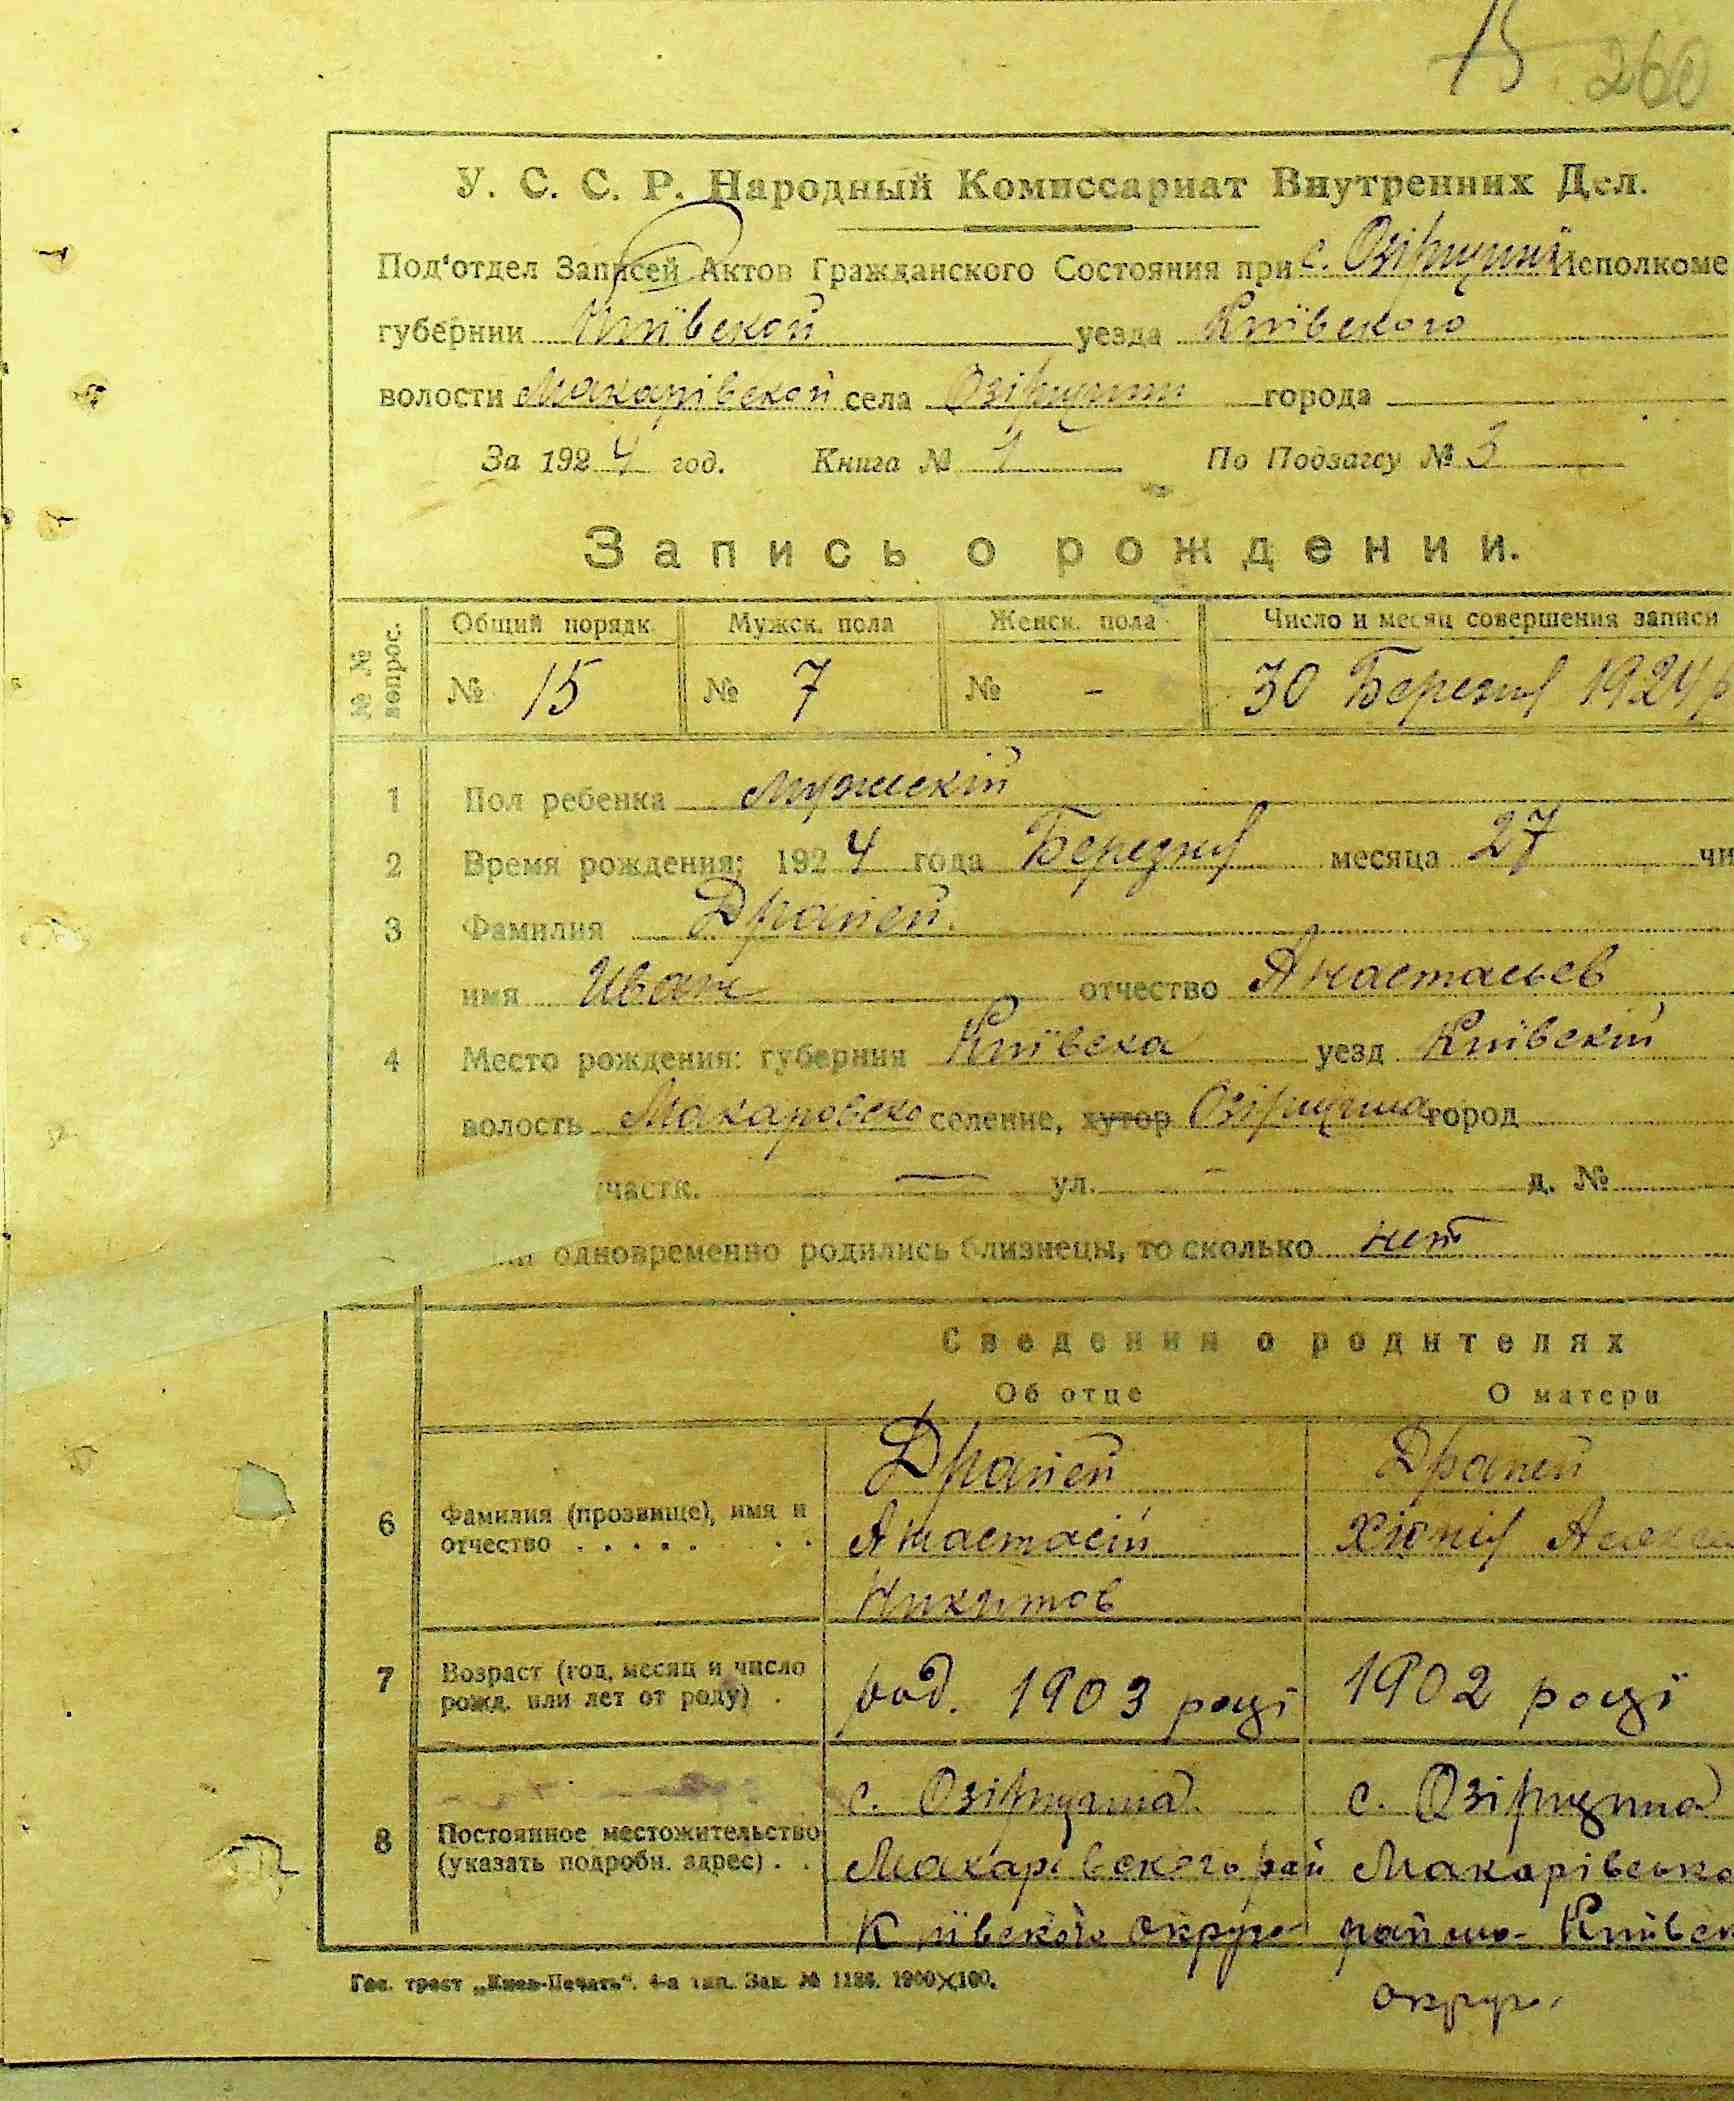 15 260
У. С. С. Р. Народный Комиссариат Внутренних Дел.
Под'отдел Записей Актов Гражданского Состояния при с. Озірщині Исполкоме
губернии Київской уезда Київского
волости Макарівской села Озірщини города
За 1924 год. Книга № 1 По Подзагсу № 3
Запись о рождении.
№ № вопрос. Общий порядк. Мужск. пола Женск. пола Число и месяц совершения записи
№ 15 № 7 № - 30 Березня 1924 р
1 Пол ребенка мужескій
2 Время рождения: 1924 года Березня месяца 27 чи
3 Фамилия Драпей
имя Иван отчество Анастасьев
4 Место рождения: губерния Київска уезд Київскій
волость Макаровско селение, хутор Озірщина город
участк. — ул. - д. №
одновременно родились близнецы, то сколько нет
Сведения о родителях
Об отце О матери
6 Фамилия (прозвище), имя и отчество Драпей Анастасій Никитов Драпей
7 Возраст (год, месяц и число рожд. или лет от роду) род. 1903 році 1902 році
8 Постоянное местожительство (указать подробн. адрес) с. Озірщина Макарівского рай Київского округа с. Озірщина Макарівсько району Київск округа
Гос. трест „Киев-Печать“. 4-а тип. Зак. № 1186. 1900×100.